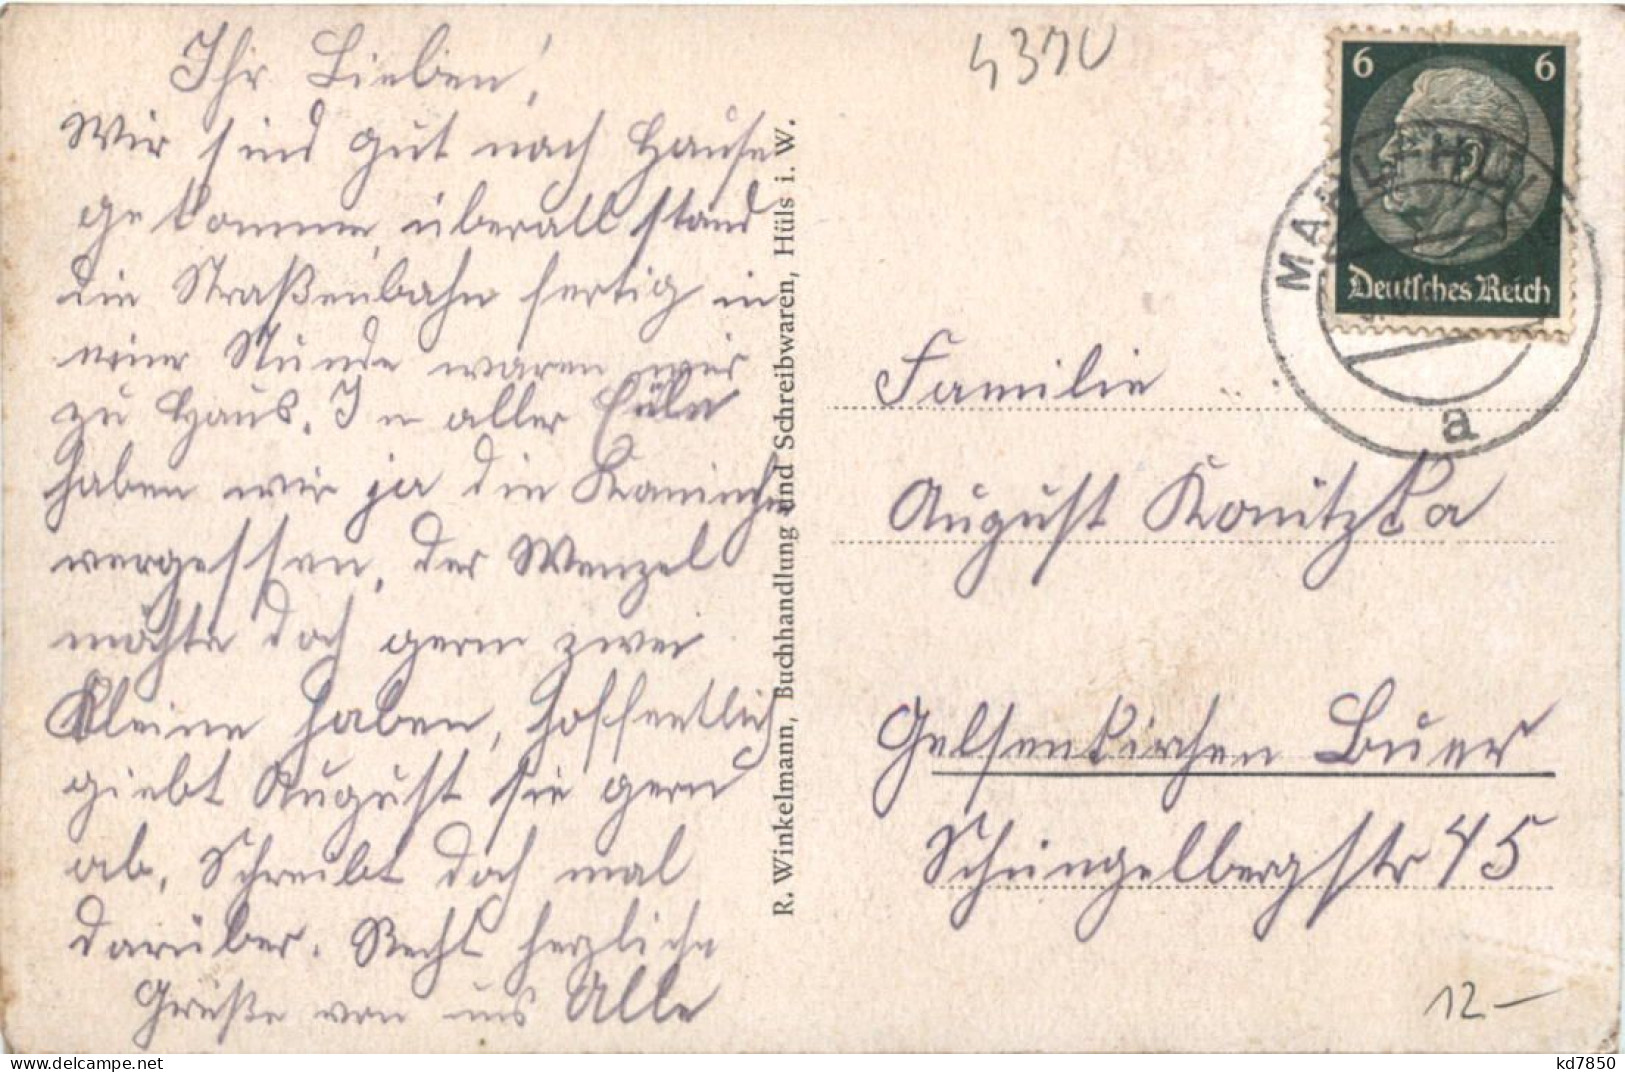 Ihr Lieben!
Wir sind gut nach Hause
gekommen, überall stand
die Straßenbahn fertig in
einer Stunde waren wir
zu Haus. In aller Eule
haben wir ja die Kaninchen
vergessen, der Wenzel
möchte doch gern zwei
Kleine haben, hoffentlich
giebt August sie gern
ab, Schreibt doch mal
darüber. Recht herzliche
Grüße von uns Alle
R. Winkelmann, Buchhandlung und Schreibwaren, Hüls i. W.
4370
6 6
Deutsches Reich
a
Familie
August Konitzka
Gelsenkirchen Buer
Schüngelbergstr 45
12-
delcampe.net
kd7850